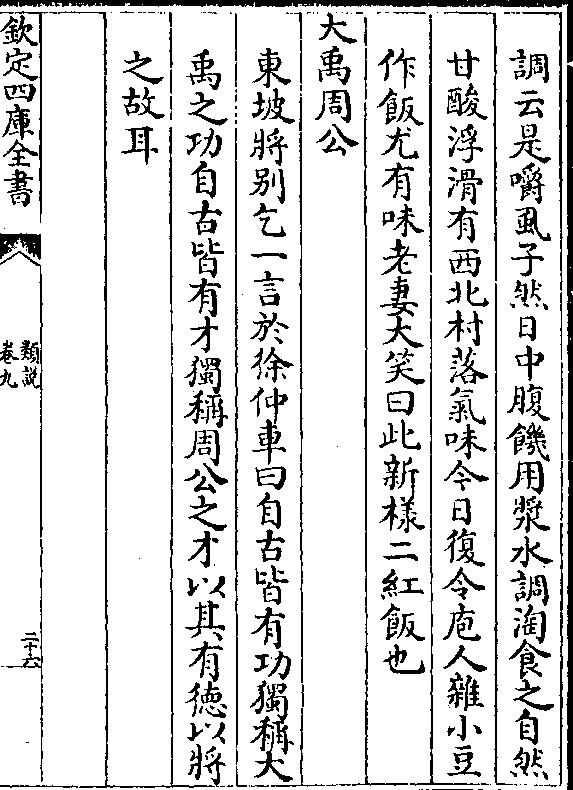 調云是嚼虱子然日中腹饑用漿水調淘食之自然
甘酸浮滑有西北村落氣味今日復令庖人雜小豆
作飯尤有味老妻大笑曰此新樣二紅飯也
大禹周公
東坡將别乞一言於徐仲車曰自古皆有功獨稱大
禹之功自古皆有才獨稱周公之才以其有德以將
之故耳
欽定四庫全書
類説
卷九
二十六